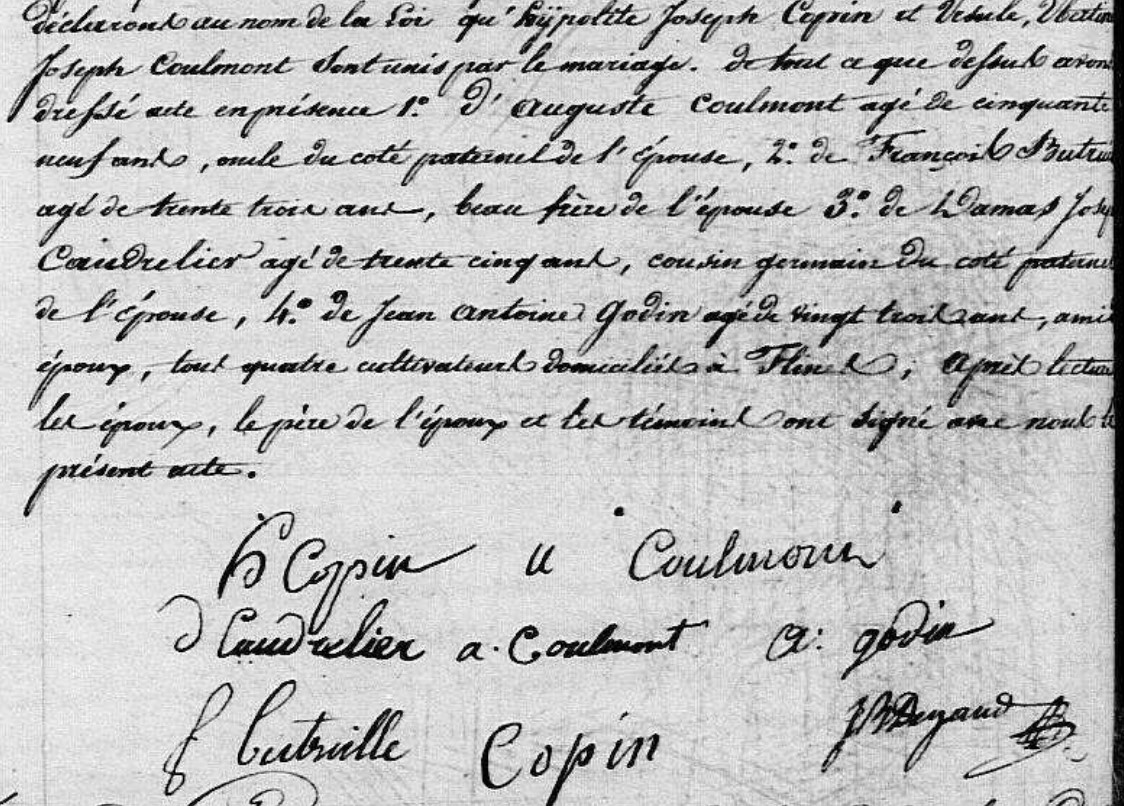 déclarons au nom de la Loi qu'hÿpolite Joseph Copin et Ursule,
Joseph Coulmont sont unis par le mariage. de tout ce que dessus avons
dressé acte en présence 1.° d'auguste Coulmont agé de cinquante
neuf ans, oncle du coté paternel de l'épouse, 2.° de François Butrui
agé de trente trois ans, beau frère de l'épouse 3.° de Damas Josep
Caudrelier agé de trente cinq ans, cousin germain du coté paternel
de l'épouse, 4.° de Jean antoine Godin agé de vingt trois ans, ami
époux, tous quatre cultivateurs domiciliés à Flines; après lecture
les époux, le père de l'époux et les témoins ont signé avec nous le
présent acte.
h Copin u Coulmont
d Caudrelier a. Coulmont a: godin
f butruille Copin